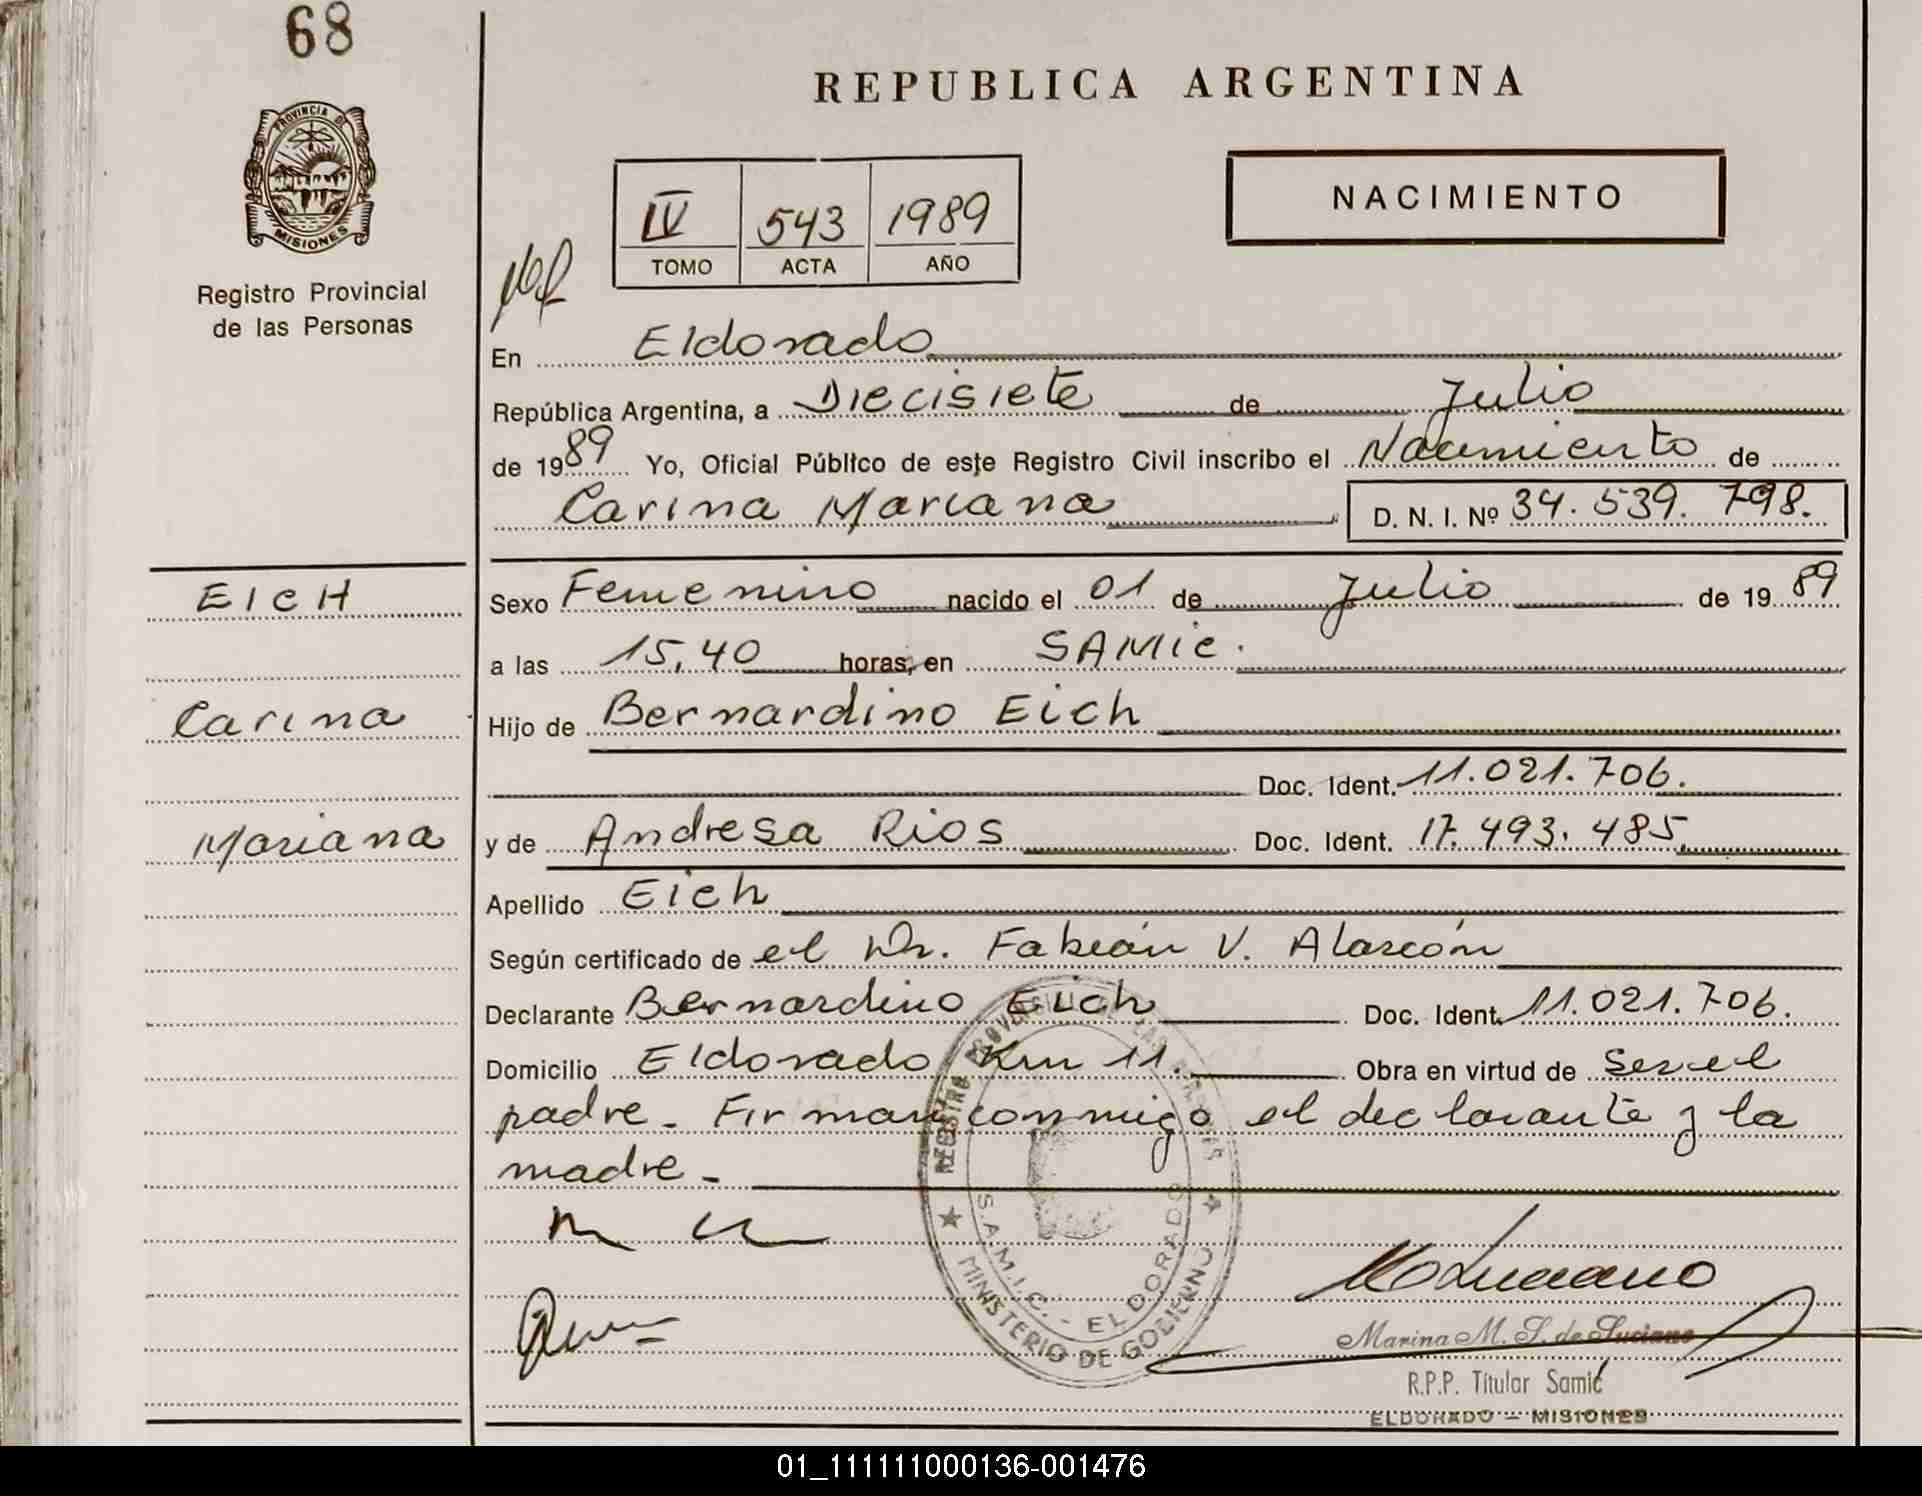 68
REPUBLICA ARGENTINA
PROVINCIA DE
MISIONES
Registro Provincial
de las Personas
IV 543 1989
TOMO ACTA AÑO
NACIMIENTO
En Eldorado
República Argentina, a Diecisiete de Julio
de 1989 Yo, Oficial Público de este Registro Civil inscribo el Nacimiento de
Carina Mariana D. N. I. Nº 34.539.798.
EICH
Carina
Mariana
Sexo Femenino nacido el 01 de Julio de 1989
a las 15,40 horas, en SAMIC.
Hijo de Bernardino Eich
Doc. Ident. 11.021.706.
y de Andresa Rios Doc. Ident. 17.493.485.
Apellido Eich
Según certificado de el Dr. Fabián V. Alarcón
Declarante Bernardino Eich Doc. Ident. 11.021.706.
Domicilio Eldorado Km 11. Obra en virtud de ser el
padre. Firman conmigo el declarante y la
madre.
REGISTRO PROVINCIAL DE LAS PERSONAS
S.A.M.I.C. - ELDORADO
MINISTERIO DE GOBIERNO
Marina M. S. de Luciano
R.P.P. Titular Samic
ELDORADO - MISIONES
01_111111000136-001476